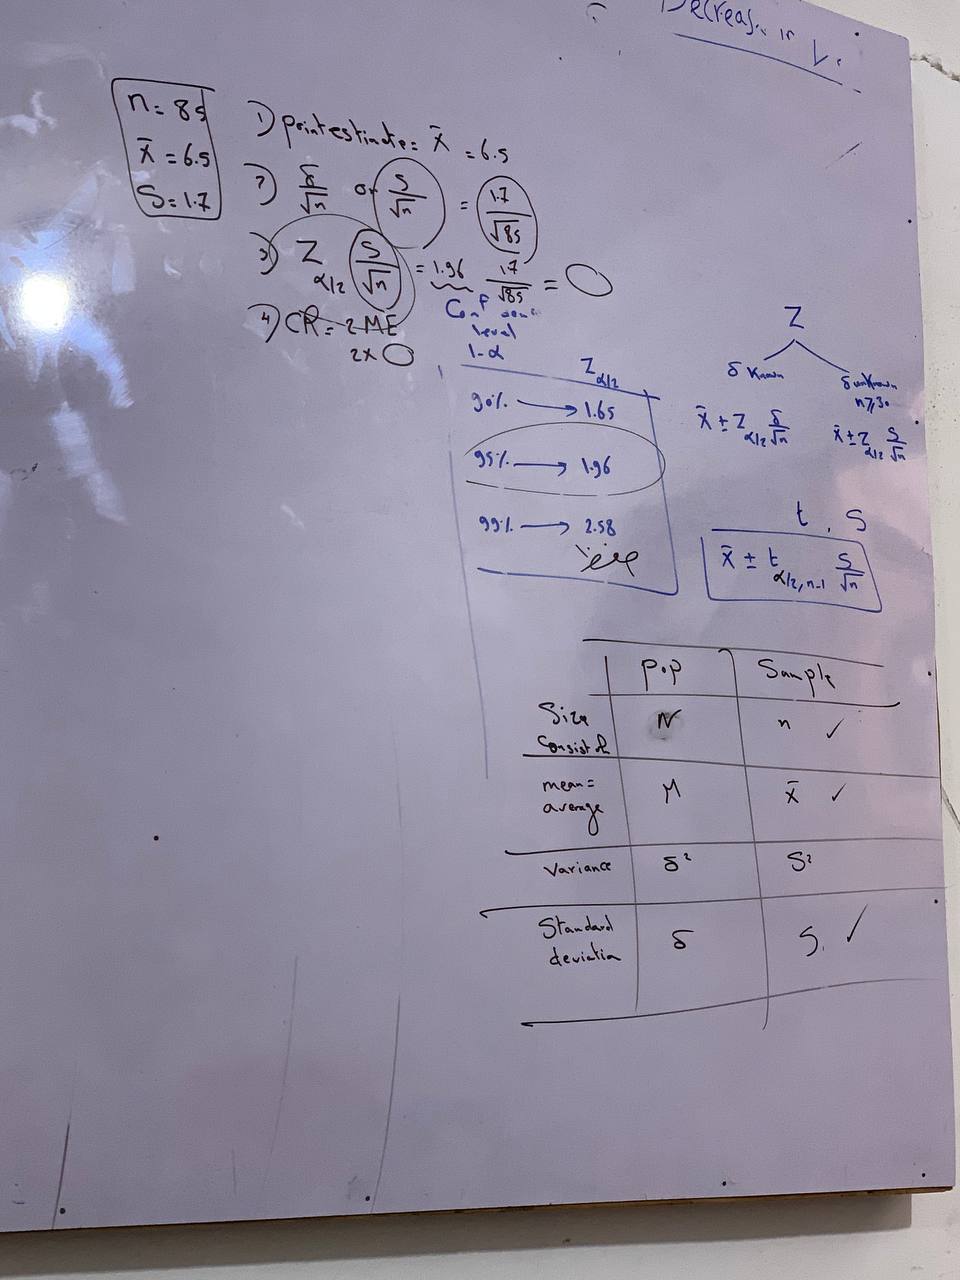 Decreas. in
n = 85
x̄ = 6.5
S = 1.7
1) point estimate = x̄ = 6.5
2) δ/√n or S/√n = 1.7/√85
3) Z α/2 S/√n = 1.96 1.7/√85 =
4) CR = 2ME
2x
Conf
level
1-α Z α/2
90% → 1.65
95% → 1.96
99% → 2.58
Z
δ Known δ unknown
n ≥ 30
x̄ ± Z α/2 δ/√n x̄ ± Z α/2 S/√n
t, S
x̄ ± t α/2, n-1 S/√n
Pop Sample
Size N n ✓
Consist of
mean = M x̄ ✓
average
Variance δ² S²
Standard δ S. ✓
deviation